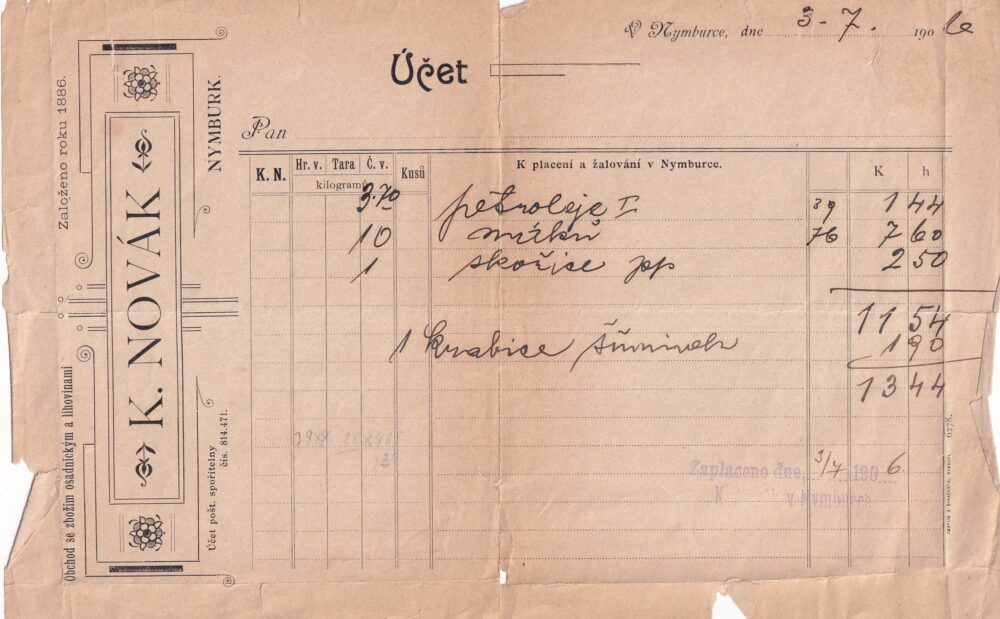 V Nymburce, dne 3-7. 1906
Účet
Založeno roku 1886.
K. NOVÁK
NYMBURK.
Obchod se zbožím osadnickým a lihovinami
Účet pošt. spořitelny
čís. 814.471.
Pan
K. N. Hr. v. Tara Č. v. Kusů K placení a žalování v Nymburce. K h
kilogramů
3.70 petroleje I 39 1 44
10 76 7 60
1 skořice pp 2 50
11 54
1 krabice 1 90
13 44
Zaplaceno dne, 3/7 1906.
K v Nymburce